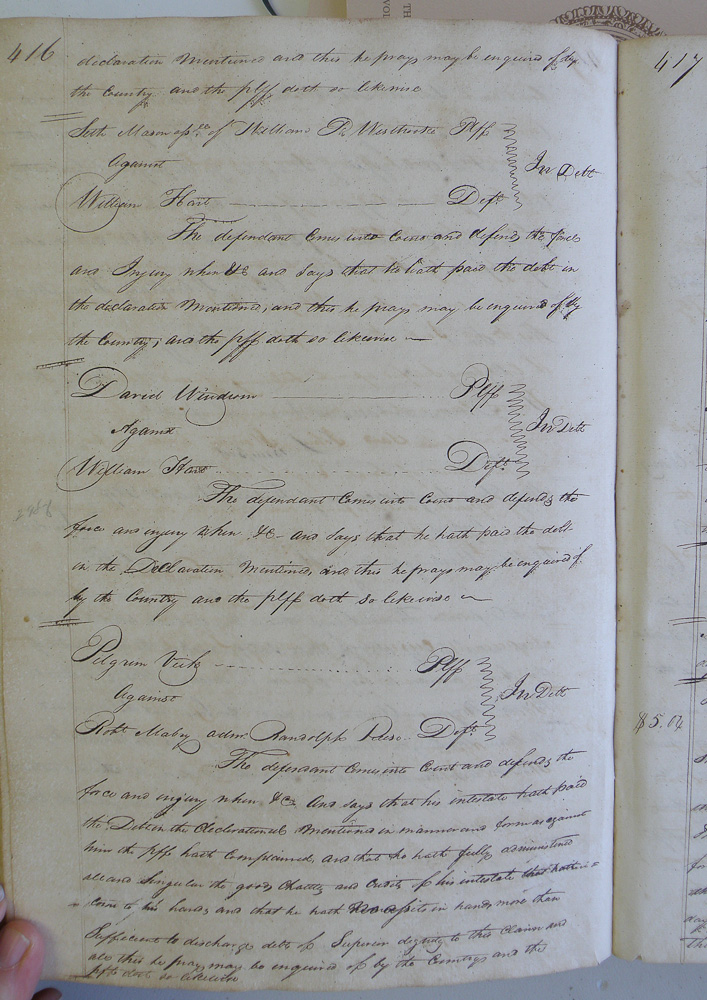 416
declaration Mentioned and this he prays may be enquired of by
the Country and the plff doth so likewise
Seth Mason assee of William Westbrooke Plff
Against
In Debt
William Hart Deft
The defendant Comes into Court and defends the force
and Injury when &c and Says that he hath paid the debt in
the declaration Mentioned, and this he prays may be enquired of by
the Country, and the plff doth so likewise
David Windrom Plff
Against
In Debt
William Hart Deft
The defendant Comes into Court and defends the
force and injury when &c and Says that he hath paid the debt
in the Declaration Mentioned, and this he prays may be enquired of
by the Country and the plff doth so likewise
Pilgrim Vick Plff
Against
In Debt
Robt Mabry adm. Randolph Deft
The defendant Comes into Court and defends the
force and injury when &c And Says that his intestate hath paid
the Debt in the declaration Mentioned in manner and form as against
him the plff hath Complained, and that he hath fully administered
all and Singular the goods Chattles and Credits of his intestate that hath
come to his hands and that he hath no assets in hands more than
Sufficient to discharge debts of Superior dignity to this Claim and
also this he prays may be enquired of by the Country and the
plff doth so likewise
417
$5.04